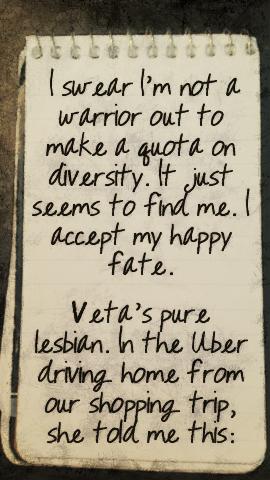 I swear I'm not a
warrior out to
make a quota on
diversity. It just
seems to find me. I
accept my happy
fate.
Veta's pure
lesbian. In the Uber
driving home from
our shopping trip,
she told me this: